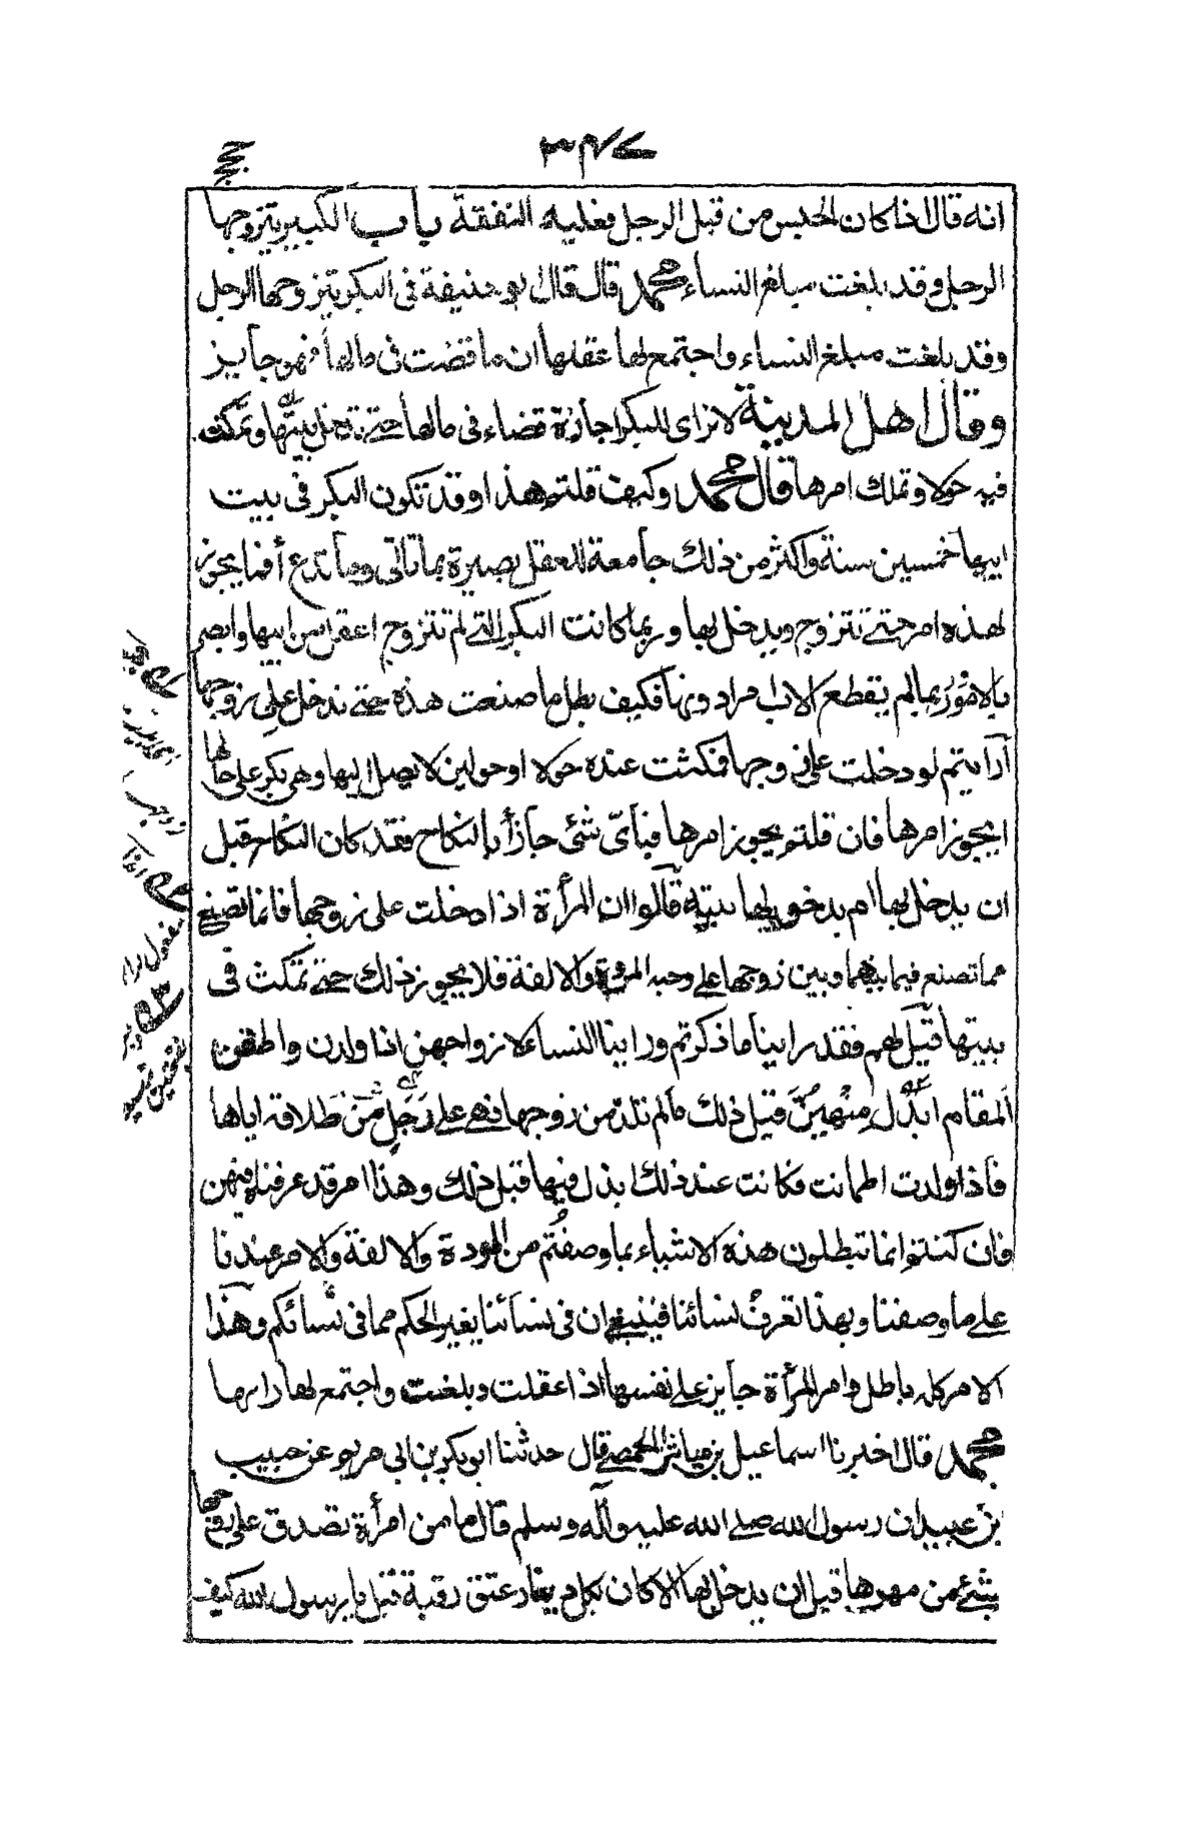 ٣٤٧
حجج
انه قال اذا كان الحبس من قبل الرجل فعليه النفقة باب الكبير يتزوجها
الرجل وقد بلغت مبلغ النساء محمد قال قال ابو حنيفة فى البكر يتزوجها الرجل
وقد بلغت مبلغ النساء واجتمع لها عقلها ان ما قضت فى مالها فهو جايز
وقال اهل المدينة لا نرى للبكر اجازة قضاء فى مالها حتى تدخل بيتها وتمكث
فيه حولا وتملك امرها قال محمد وكيف قلتم هذا وقد تكون البكر فى بيت
ابيها خمسين سنة واكثر من ذلك جامعة للعقل بصيرة بما تاتى وما تدع أفما يجوز
لهذه امر حتى تتزوج ويدخل بها وربما كانت البكر التى لم تتزوج اعقل من ابيها وابصر
بالامور بما لم يقطع الاب امراد ونها فكيف بطل ما صنعت هذه حتى تدخل على زوجها
أرأيتم لو دخلت على زوجها فمكثت عنده حولا او حولين لا يصل اليها وهى بكر على حالها
ايجوز امرها فان قلتم يجوز امرها فبأىّ شئ جاز أبالنكاح فقد كان النكاح قبل
ان يدخل بها ام بدخولها بيته قالوا ان المرأة اذا دخلت على زوجها فانما تصنع
مما تصنع فيما بينهما وبين زوجها على وجه المودة والالفة فلا يجوز ذلك حتى تمكث فى
بيتها قيل لهم فقد راينا ما ذكرتم وراينا النساء لازواجهن اذا ولدن واطمئن
المقام ابذل منهن قبل ذلك مالم تلد من زوجها فهى على رجل من طلاقه اياها
فاذا ولدت اطمانت فكانت عند ذلك ابذل فيها قبل ذلك وهذا امر قد عرفناه فيهن
فان كنتم انما تبطلون هذه الاشياء بما وصفتم من المودة والالفة والامر عندنا
على ما وصفنا وبهذا تعرف نسائنا فينبغى ان فى نسائنا يغير الحكم مما فى نسائكم وهذا
الامر كله باطل وامر المرأة جايز على نفسها اذا عقلت وبلغت واجتمع لها رايها
محمد قال اخبرنا اسماعيل بن عياش الحمصى قال حدثنا ابو بكر بن ابى مريم عن حبيب
بن عبيد ان رسول الله صلى الله عليه وآله وسلم قال ما من امرأة تصدق على زوجها
بشئ من مهرها قبل ان يدخل بها الا كان بكل دينار عتق رقبة قيل يا رسول الله كيف